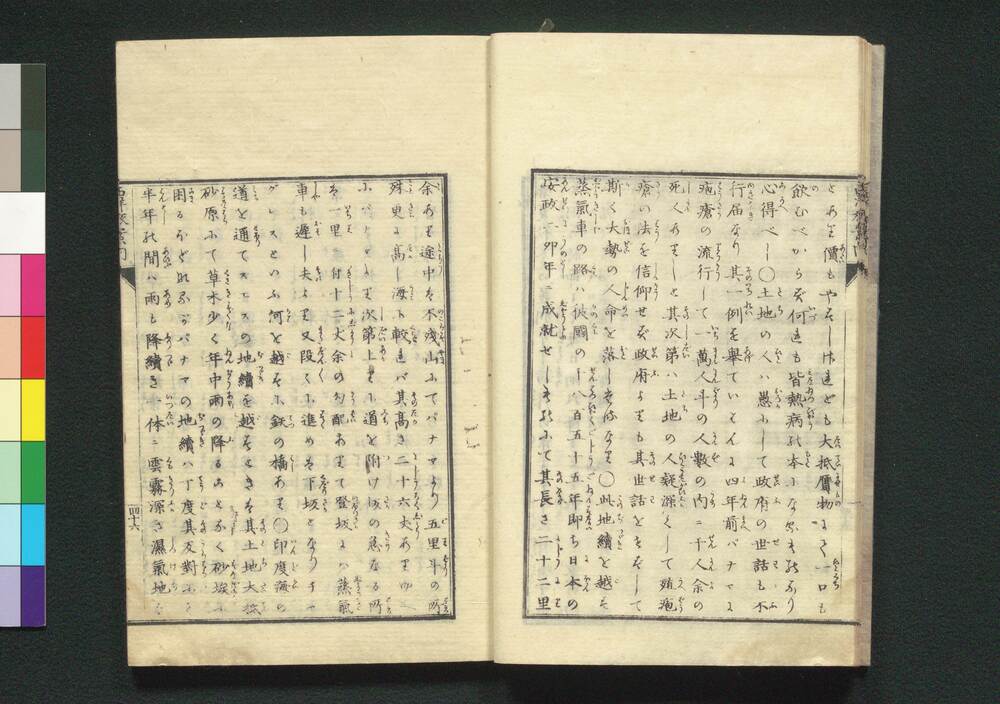 とあり價もやすけれども大抵贋物にて一口も
飲むべからず何れも皆熱病の本になるものなり
心得べし〇土地の人ハ愚にして政府の世話も不
行届なり其一例を舉ていヽんに四年前パナマに
疱瘡の流行して一萬人斗の人數の内二千人余の
死人ありしと其次第ハ土地の人疑深くして殖疱
瘡の法を信仰せず政府よりも其世話をせずして
斯く大勢の人命を落しヽなり〇此地續を越す
蒸氣車の路ハ彼國の千八百五十五年即ち日本の
安政二卯年に成就せしものにて其長さ二十二里
余あり途中ハ不殘山にてパナマより五里斗の所
殊更に高し海に較れバ其高さ二十六丈あり
次第上りに道を附け坂の急なる所
ハ一里ニ付十二丈余の勾配ありて登坂にハ蒸氣
車も遲し夫より又段々に進めバ下坂となりチャ
グレスといふ河を越すに鉄の橋あり〇印度海の
道を通てスエスの地續を越すときハ其土地大抵
砂原にて草木少く年中雨の降ることなく砂埃に
困るほどなるがパナマの地續ハ丁度其反對にて
半年の間ハ雨も降續き一体ニ雲霧深き濕氣地
四十六